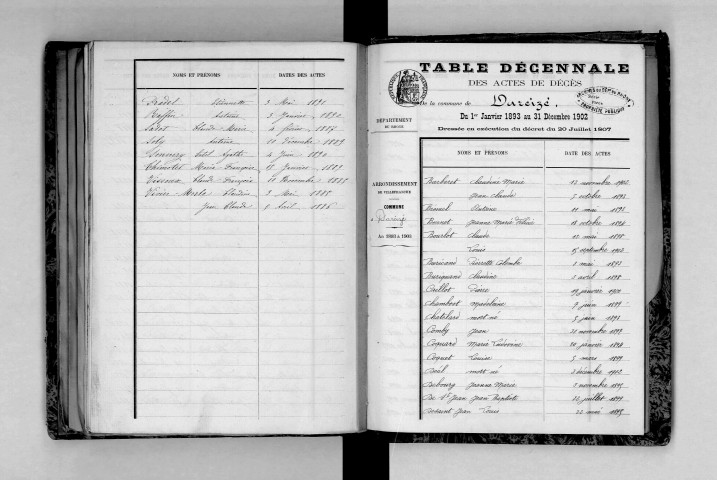 NOMS ET PRÉNOMS DATES DES ACTES
Pradel Antoinette 3 Mai 1891
Raffin Antoine 3 Janvier 1890
Claude Marie 4 février 1887
Soly Antoine 10 Décembre 1889
Agathe 4 Juin 1890
Marie Françoise 15 Janvier 1889
Claude François 10 Novembre 1889
Claudine 3 Mai 1885
Jean Claude 9 Avril 1886
TABLE DÉCENNALE
DES ACTES DE DÉCÈS
De la commune de Dareizé.
Du 1er Janvier 1893 au 31 Décembre 1902
Dressée en exécution du décret du 20 Juillet 1907
DÉPARTEMENT
DU RHONE
ARRONDISSEMENT
DE VILLEFRANCHE
COMMUNE
Dareizé
An 1893 à 1902
NOMS ET PRÉNOMS DATE DES ACTES
Barberet Claudine Marie 12 novembre 1902
Jean Claude 5 octobre 1893
Antoine 11 mai 1895
Bonnet Jeanne Marie 18 octobre 1896
Bourlot Claude 12 mai 1898
Louis 15 septembre 1902
Buricand Pierrette Colombe 1 mai 1893
Buriquand Claudine 2 avril 1898
Caillot Pierre 29 janvier 1901
Chambost Madeleine 7 juin 1899
Chatelard mort né 5 juin 1893
Comby Jean 21 novembre 1893
Coquard Marie 20 janvier 1894
Coquet Louise 5 mars 1899
mort né 2 décembre 1902
Debourg Jeanne Marie 7 novembre 1895
De St Jean Jean Baptiste 22 juillet 1899
Jean Louis 22 mai 1895